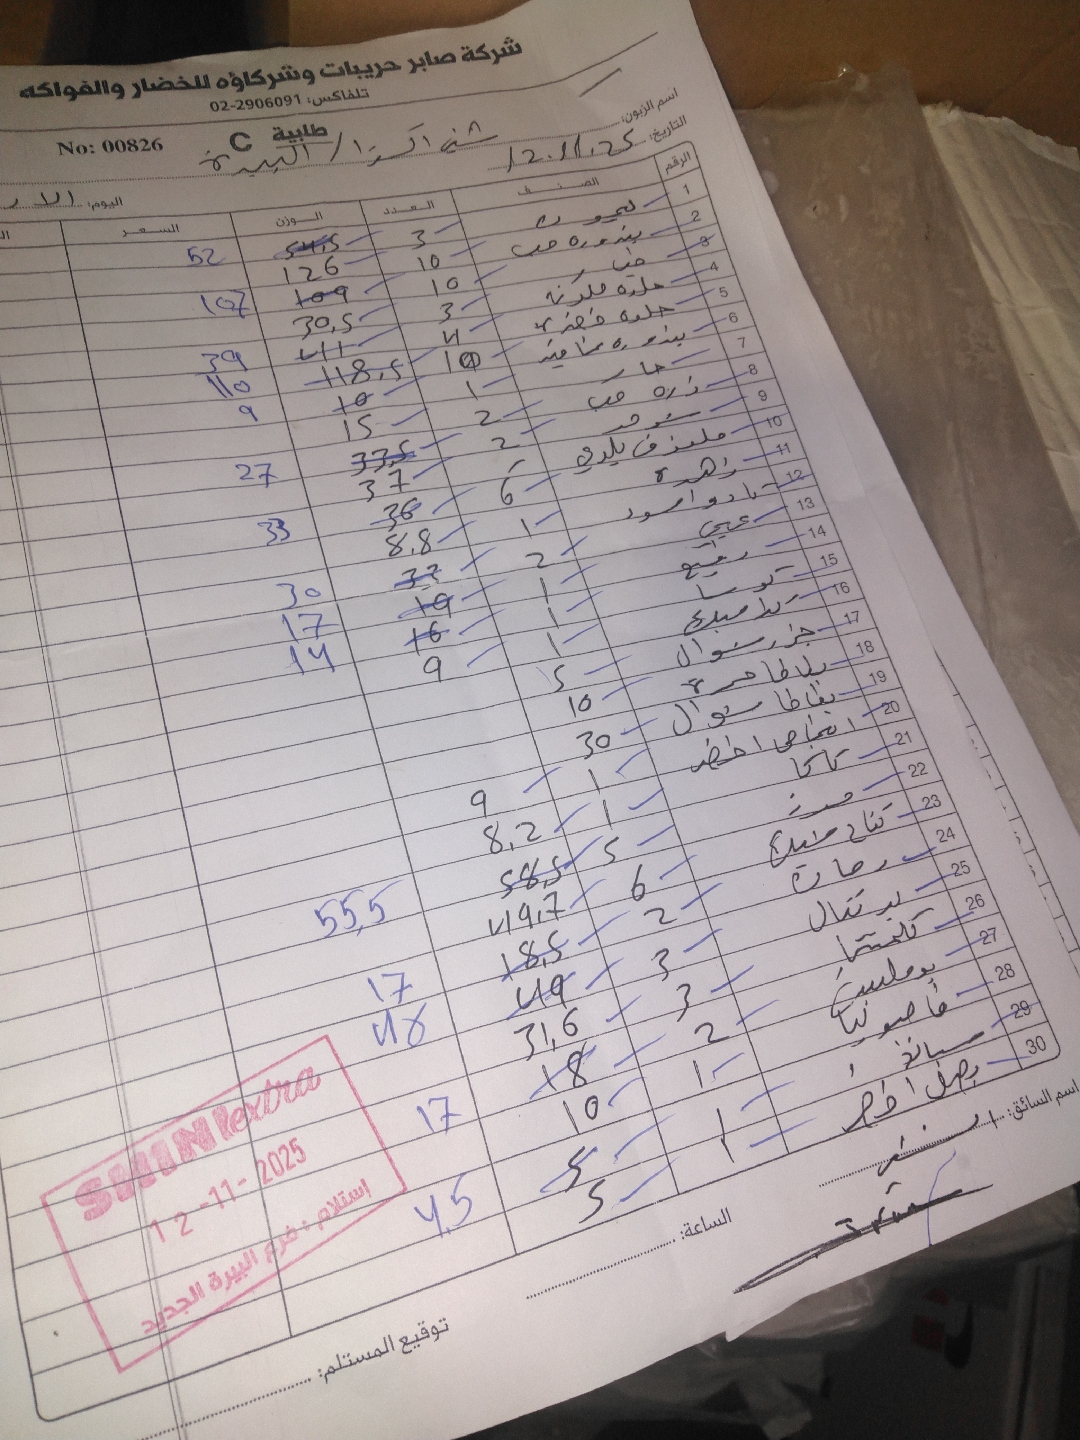 شركة صابر حريبات وشركاؤه للخضار والفواكه
تلفاكس: 02-2906091
طابية C
No: 00826
اسم الزبون: شني اكسترا / البيرة
التاريخ: 12.11.25
اليوم:
الرقم الصنف العدد الوزن السعر
1 ليمون 3 54,5 52
2 بندوره حب 10 126
3 خيار 10 109 107
4 حلوه ملونه 3 30,5
5 حلوه خضره 4 41 39
6 بندوره 10 118,5 110
7 حار 1 10 9
8 ذره حب 2 15
9 2 33,5 27
10 ملفوف بلدي 6 37
11 زهرة 6 36 33
12 اسود 1 8,8
13 2 33 30
14 1 19 17
15 1 16 14
16 1 9
17 جزر شوال 5
18 بطاطا حمرة 10
19 بطاطا شوال 30
20 اخضر 1 9
21 1 8,2
22 موز 5 58,5 55,5
23 تفاح 6 49,7
24 2 18,5 17
25 برتقال 3 49 48
26 كلمنتينا 3 31,6
27 2 18 17
28 فاصوليا 1 10
29 سبانخ 5 4,5
30 بصل اخضر 1 5
اسم السائق:
الساعة:
توقيع المستلم:
SHINI extra
12-11-2025
استلام: فرع البيرة الجديد